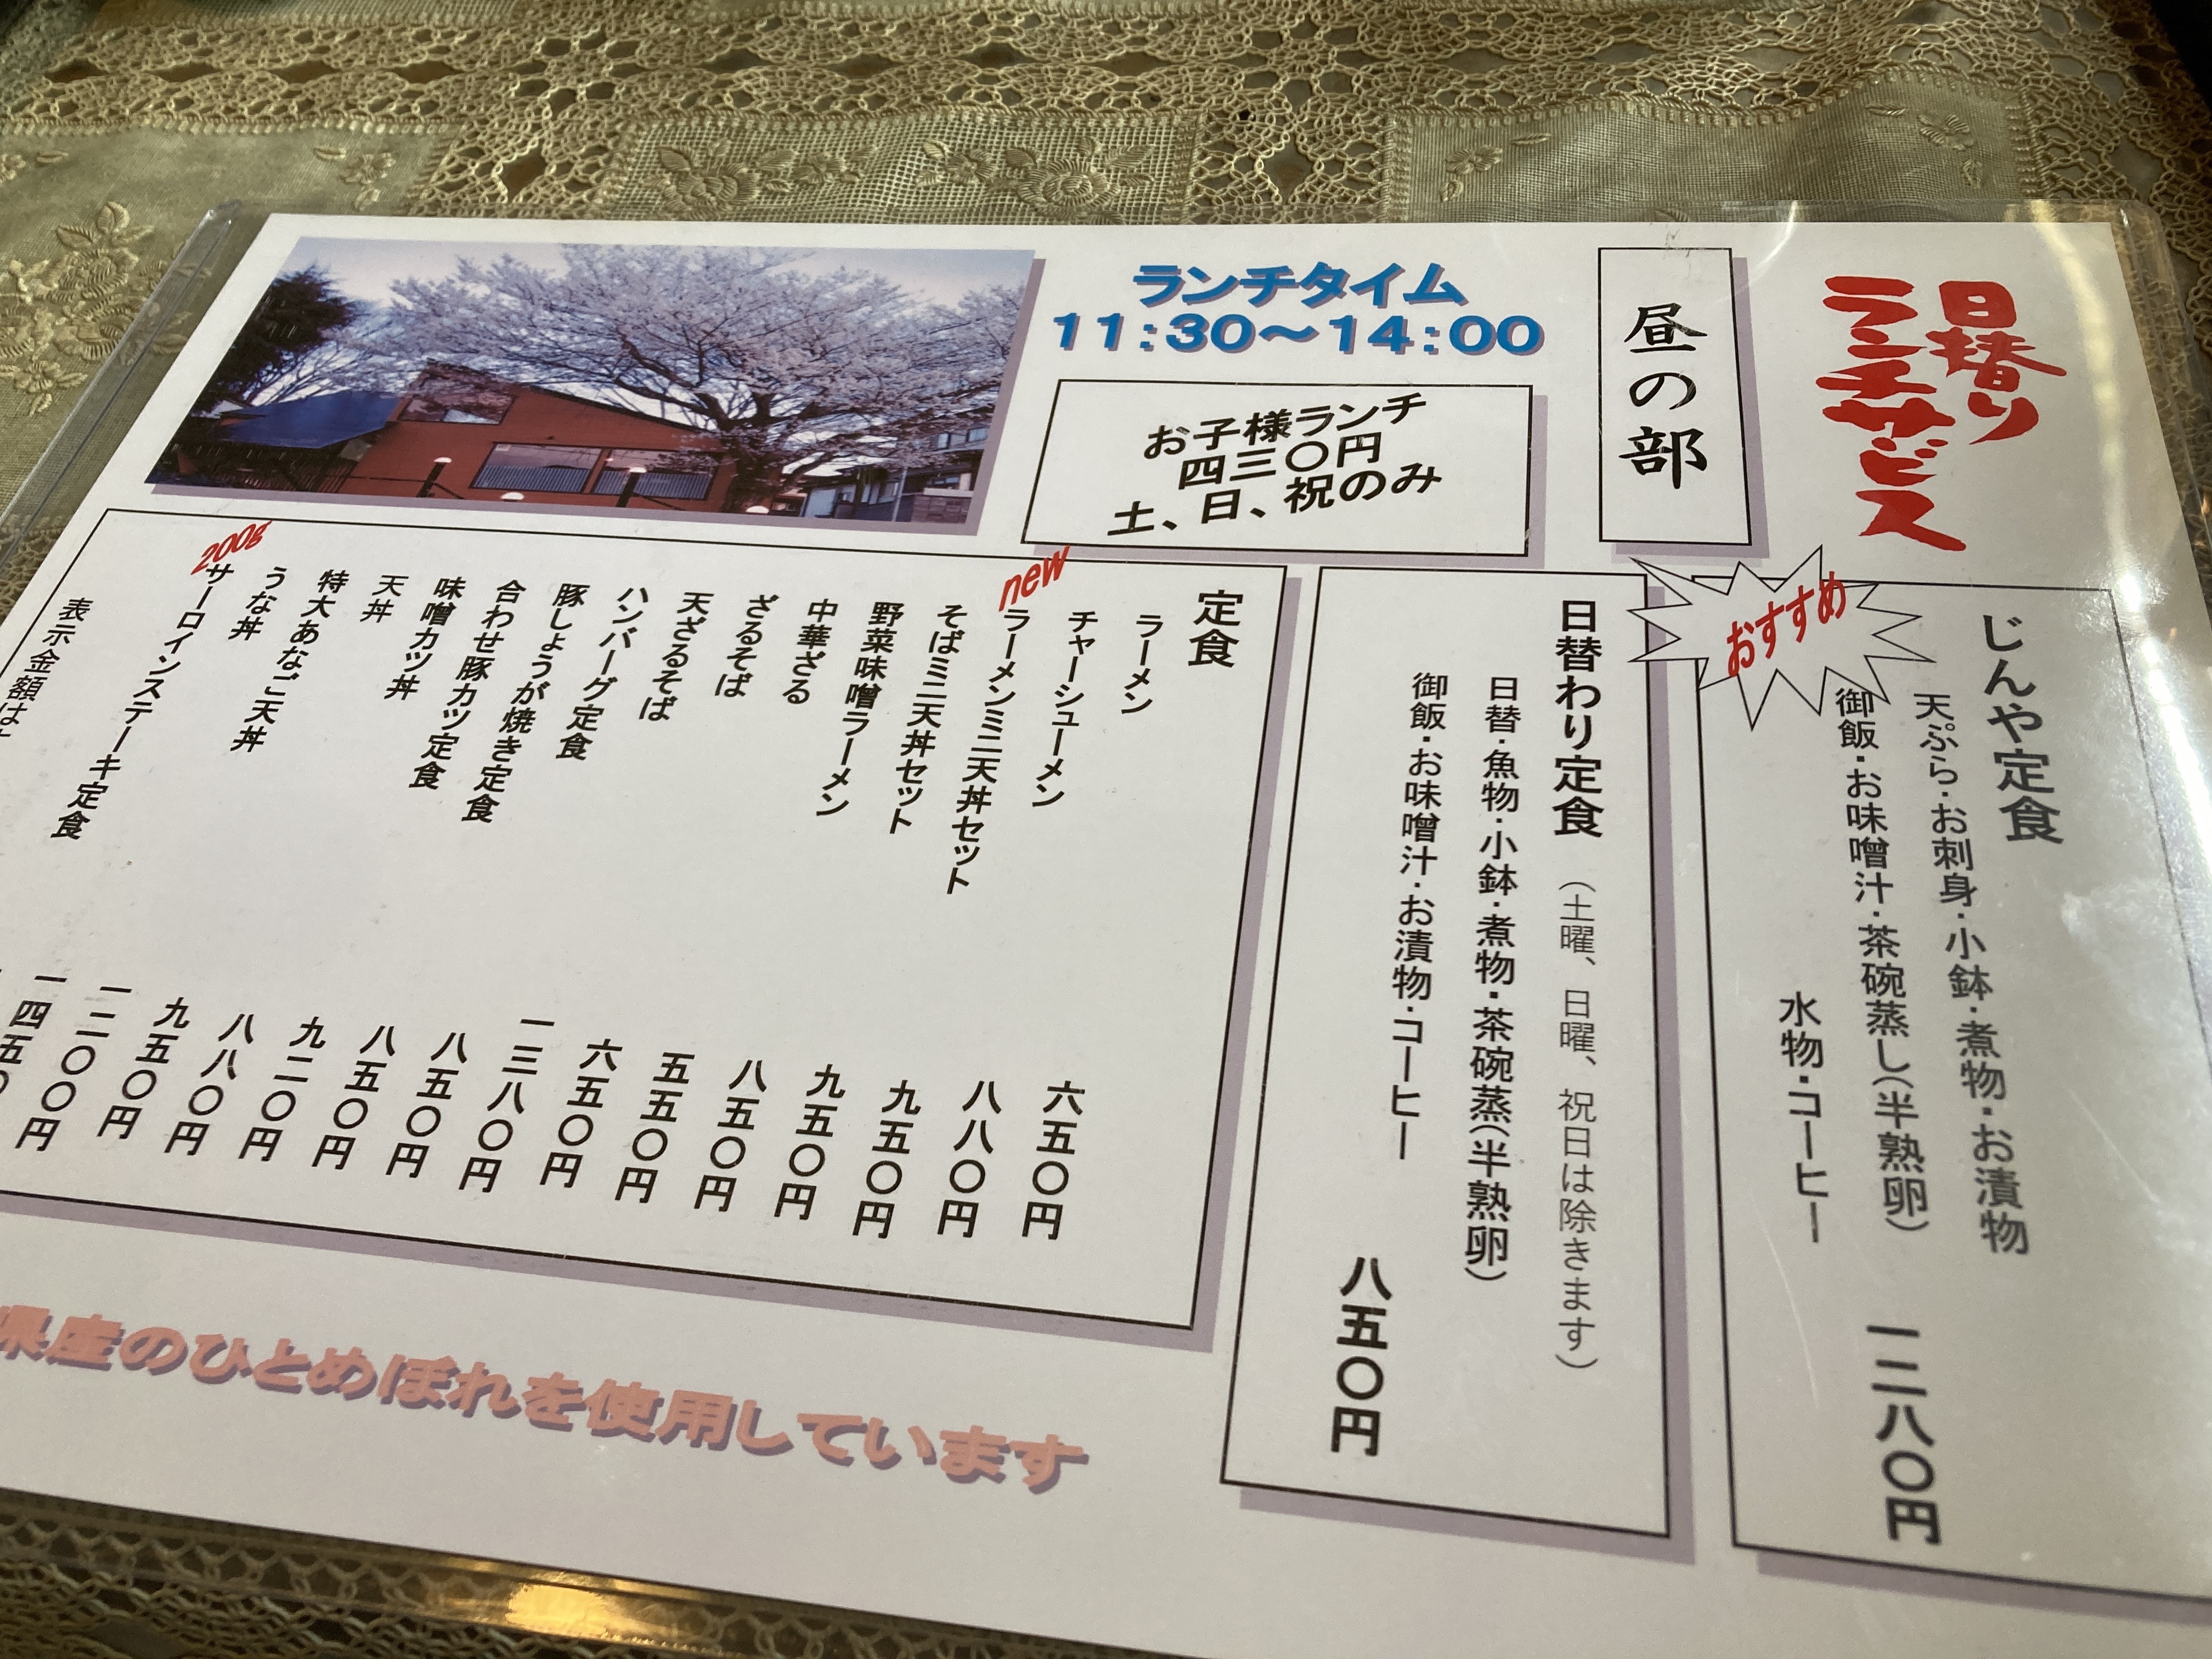 日替り
ランチサービス
昼の部
ランチタイム
11:30～14:00
お子様ランチ
四三〇円
土、日、祝のみ
おすすめ
じんや定食
天ぷら・お刺身・小鉢・煮物・お漬物
御飯・お味噌汁・茶碗蒸し(半熟卵)
水物・コーヒー
一二八〇円
日替わり定食 (土曜、日曜、祝日は除きます)
日替・魚物・小鉢・煮物・茶碗蒸(半熟卵)
御飯・お味噌汁・お漬物・コーヒー
八五〇円
定食
ラーメン 六五〇円
チャーシューメン 八八〇円
new ラーメンミニ天丼セット 九五〇円
そばミニ天丼セット 九五〇円
野菜味噌ラーメン 八五〇円
中華ざる 五五〇円
ざるそば 六五〇円
天ざるそば 一三八〇円
ハンバーグ定食 八五〇円
豚しょうが焼き定食 八五〇円
合わせ豚カツ定食 九二〇円
味噌カツ丼 八八〇円
天丼 九五〇円
特大あなご天丼 一二〇〇円
うな丼 一四五〇
200g サーロインステーキ定食
表示金額は
県産のひとめぼれを使用しています